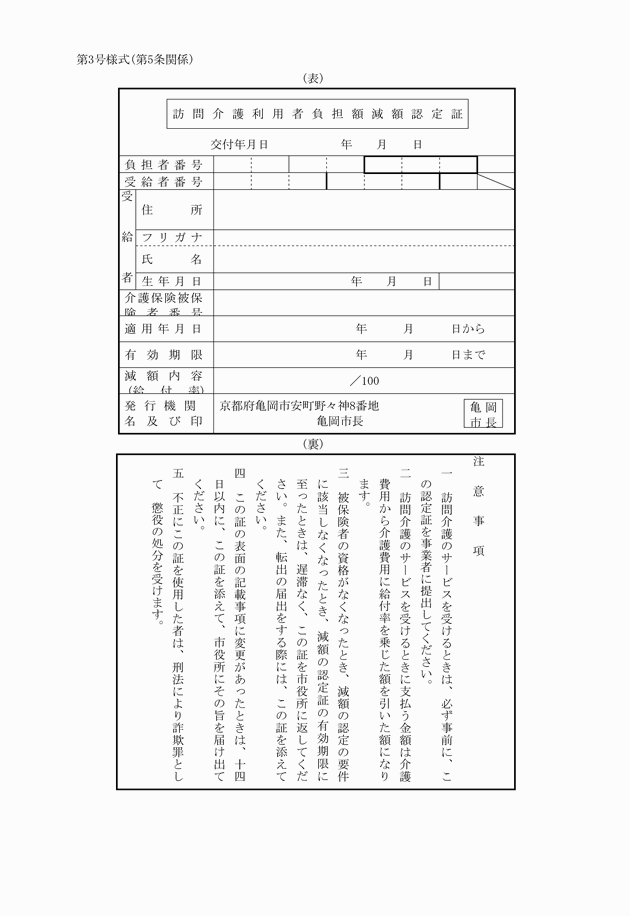 第3号様式(第5条関係)
(表)
訪問介護利用者負担額減額認定証
交付年月日　年　月　日
負担者番号
受給者番号
受給者
住所
フリガナ
氏名
生年月日　年　月　日
介護保険被保
険者番号
適用年月日　年　月　日から
有効期限　年　月　日まで
減額内容
(給付率)
／100
発行機関
名及び印
京都府亀岡市安町野々神8番地
亀岡市長
亀岡
市長
(裏)
注意事項
一　訪問介護のサービスを受けるときは、必ず事前に、こ
の認定証を事業者に提出してください。
二　訪問介護のサービスを受けるときに支払う金額は介護
費用から介護費用に給付率を乗じた額を引いた額になり
ます。
三　被保険者の資格がなくなったとき、減額の認定の要件
に該当しなくなったとき、減額の認定証の有効期限に
至ったときは、遅滞なく、この証を市役所に返してくだ
さい。また、転出の届出をする際には、この証を添えて
ください。
四　この証の表面の記載事項に変更があったときは、十四
日以内に、この証を添えて、市役所にその旨を届け出て
ください。
五　不正にこの証を使用した者は、刑法により詐欺罪とし
て　懲役の処分を受けます。